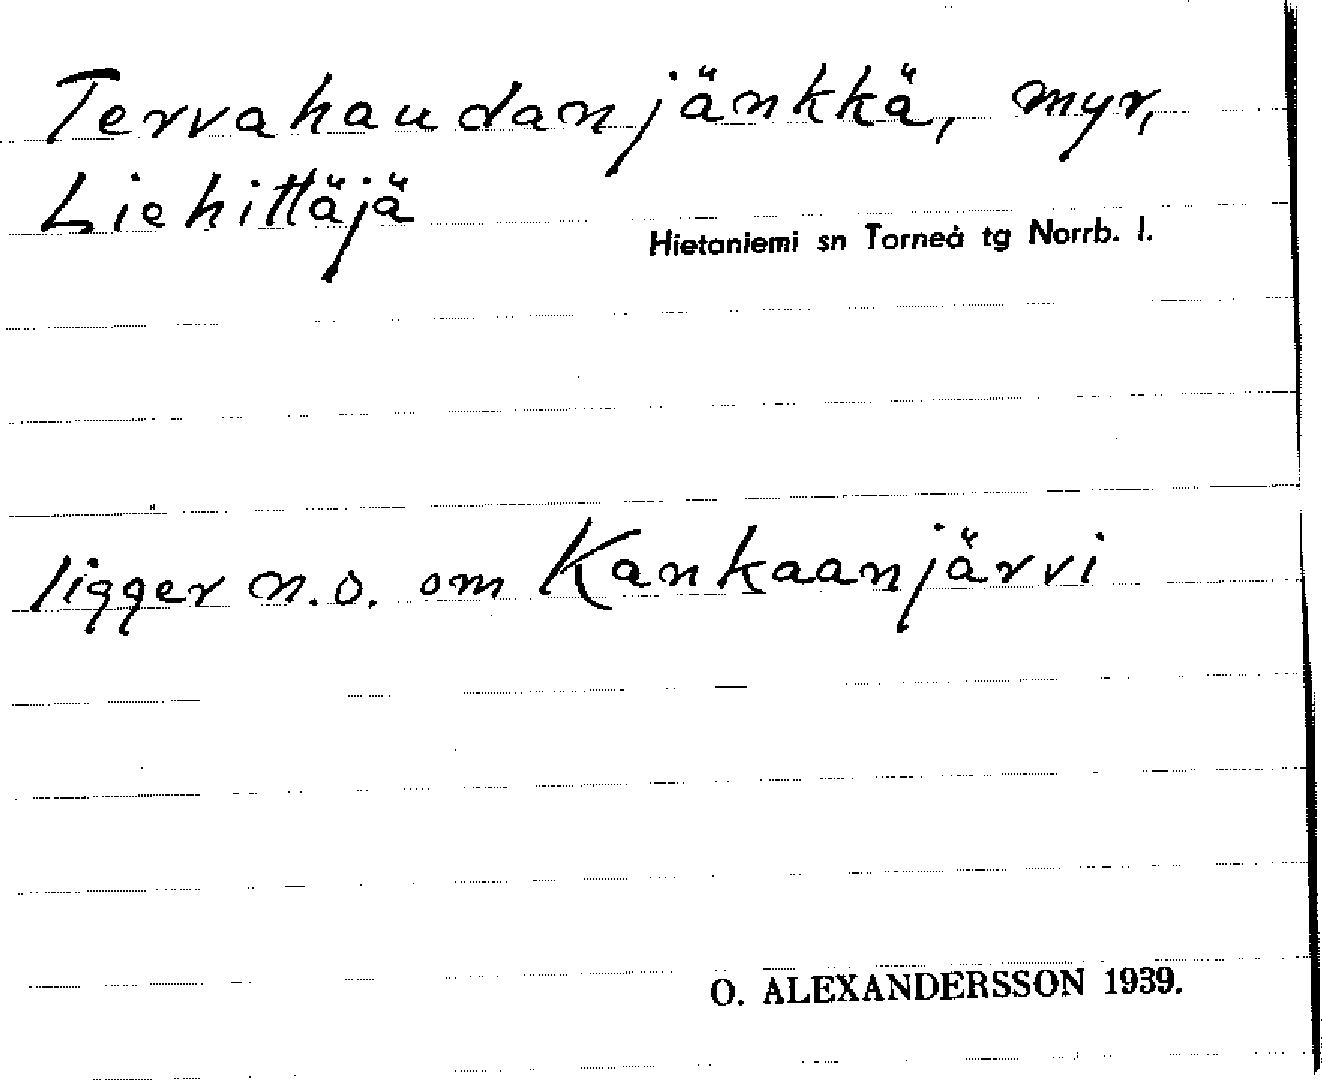 Tervahaudanjänkkä, myr,
Liehittäjä
Hietaniemi sn Torneå tg Norrb. l.
ligger n.o. om Kankaanjärvi
O. ALEXANDERSSON 1939.